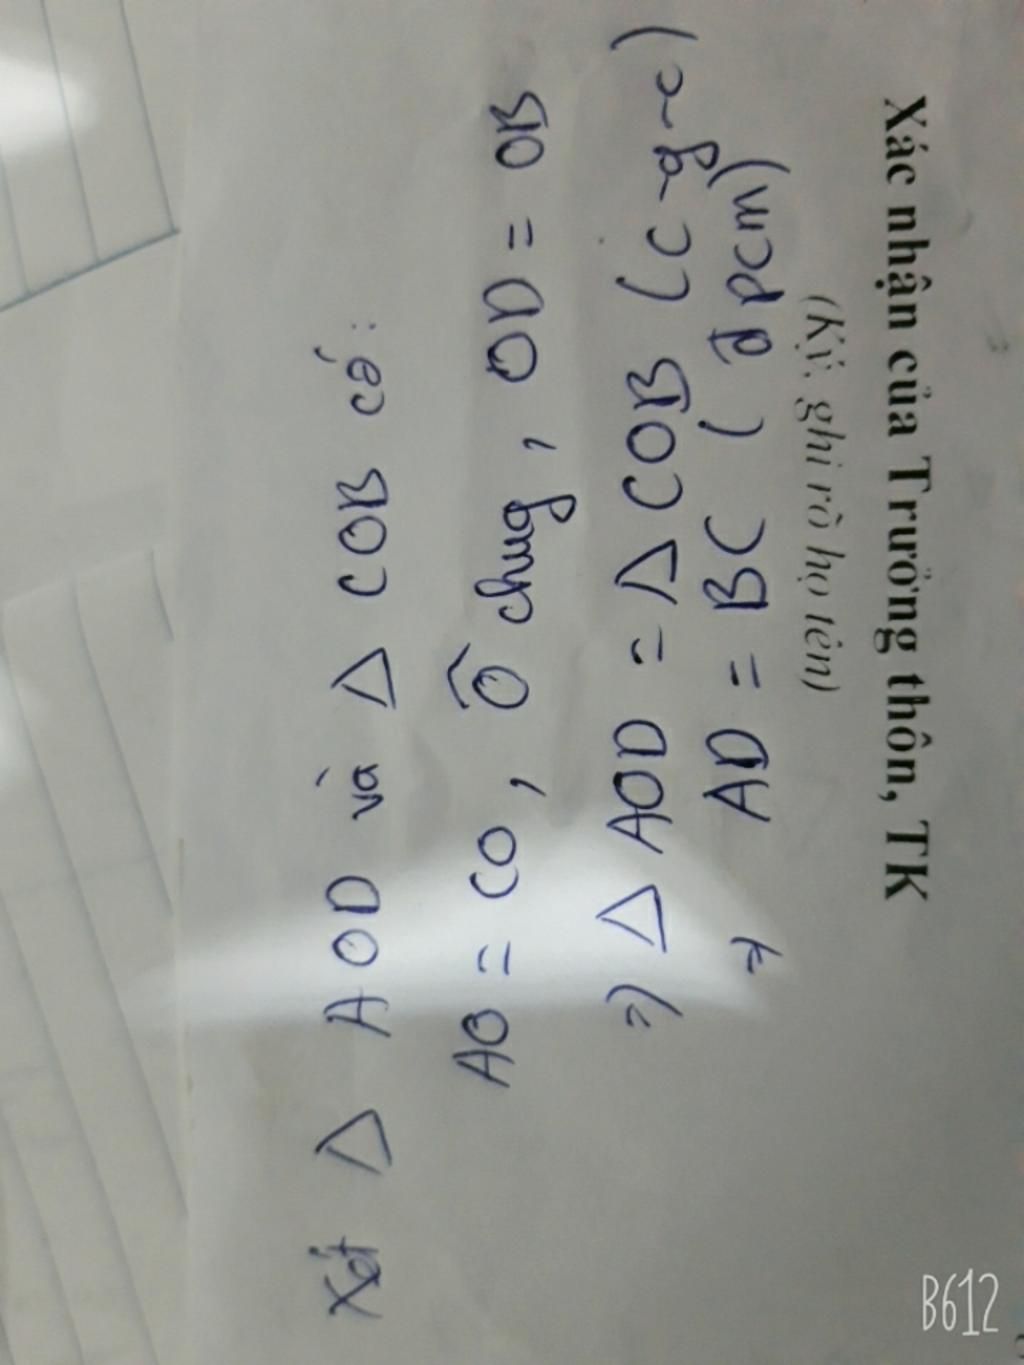 Xét Δ AOD và Δ COB có:
AO = CO, Ô chung, OD = OB
=) Δ AOD = Δ COB (c-g-c)
=> AD = BC (đpcm)
Xác nhận của Trưởng thôn, TK
(Ký, ghi rõ họ tên)
B612